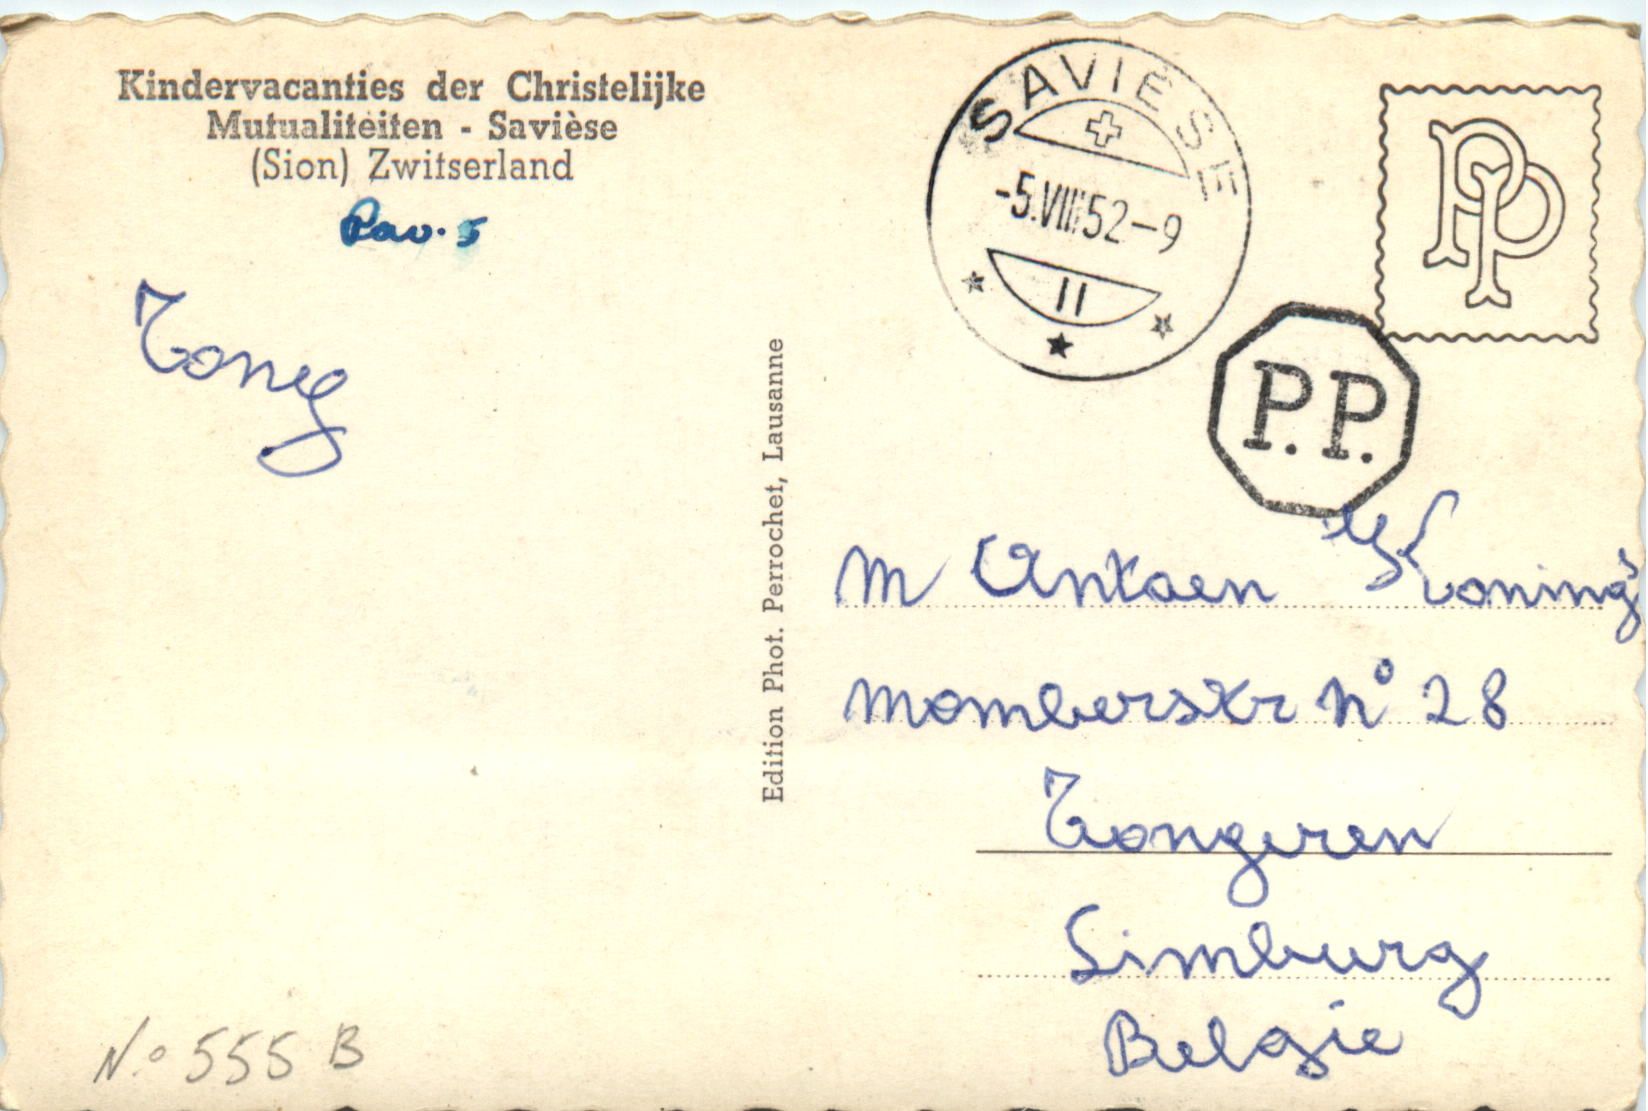 Kindervacanties der Christelijke
Mutualiteiten - Savièse
(Sion) Zwitserland
Pav. 5
Tony
N.o 555 B
Edition Phot. Perrochet, Lausanne
SAVIÈSE
-5.VIII.52-9
11
PP
P.P.
M Antoen Koning's
Momberstr No 28
Tongeren
Limburg
Belgie